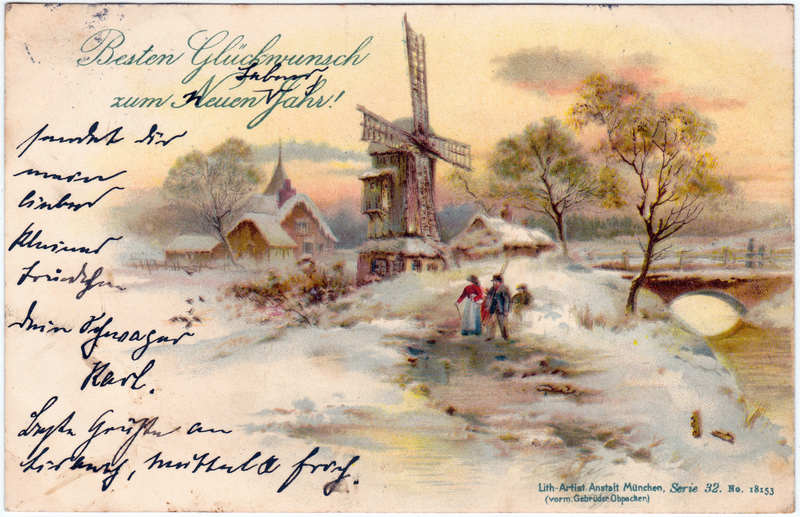 Besten Glückwunsch
Lebens
zum Neuen Jahr!
sendet dir
mein
liebes
kleines
Dein Schwager
Karl.
Beste Grüße an
Lith-Artist. Anstalt München, Serie 32. No. 18153
(vorm. Gebrüder Obpacher)